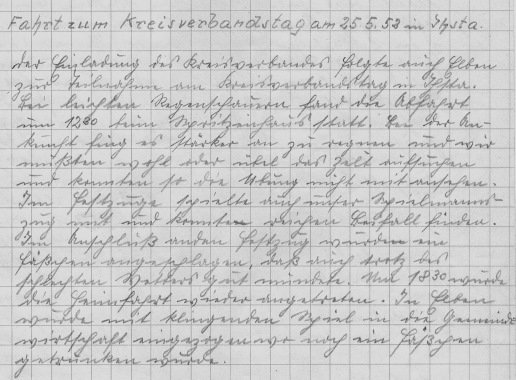 Fahrt zum Kreisverbandstag am 25.5.58 in Ihsta.
Der Einladung des Kreisverbandes folgte auch Elben
zur Teilnahme am Kreisverbandstag in Ihsta.
Bei leichten Regenschauern fand die Abfahrt
um 12 30 beim Spritzenhaus statt. Bei der An-
kunft fing es stärker an zu regnen und wir
mußten wohl oder übel das Zelt aufsuchen
und konnten so die Übung nicht mit ansehen.
Im Festzuge spielte auch unser Spielmanns-
zug mit und konnten reichen Beifall finden.
Im Anschluß an den Festzug wurden ein
Fäßchen angeschlagen, daß auch trotz des
schlechten Wetters gut mundete. Um 18 30 wurde
die Heimfahrt wieder angetreten. In Elben
wurde mit klingenden Spiel in die Gemeinde
wirtschaft eingezogen wo noch ein Fäßchen
getrunken wurde.